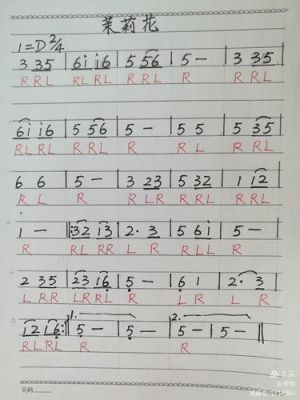 茉莉花
1=D 2/4
3 35 | 6i i6 | 5 56 | 5 – | 3 35 |
R RL RL RL R RL R R RL
6i i6 | 5 56 | 5 – | 5 5 | 5 35 |
RL RL R RL R R L R RL
6 6 | 5 – | 3 23 | 5 32 | 1 12 |
R L R R LR R RL R RL
1 – ‖: 32 13 | 2. 3 | 5 6i | 5 – |
R RL RL L R R LL R
2 35 | 23 16 | 5 – | 6 1 | 2. 3 |
L RR LR RL R L R L R
12 16 :‖ 1. 5 – | 5 – | 2. 5 – | 5 – ‖
RL RL R R